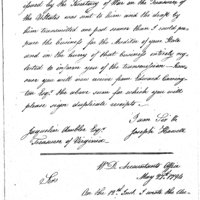 opened by the Secretary of War on the Treasurer of
the U States was sent to him and the draft by
him transmitted one post sooner than I could pre-
pare the business for the Auditor of your State
and in the hurry of that business entirely neg-
lected to inform you of the transmission — how-
ever you will now receive from Edward Carring-
ton Esqr the above sum for which you will
please sign duplicate receipts —
I am Sir &c
Joseph Howell
Jacquelin Ambler Esqr
Treasurer of Virginia
W. D. Accountants Office
May 22d 1794
Sir
On the 19th Inst I wrote the